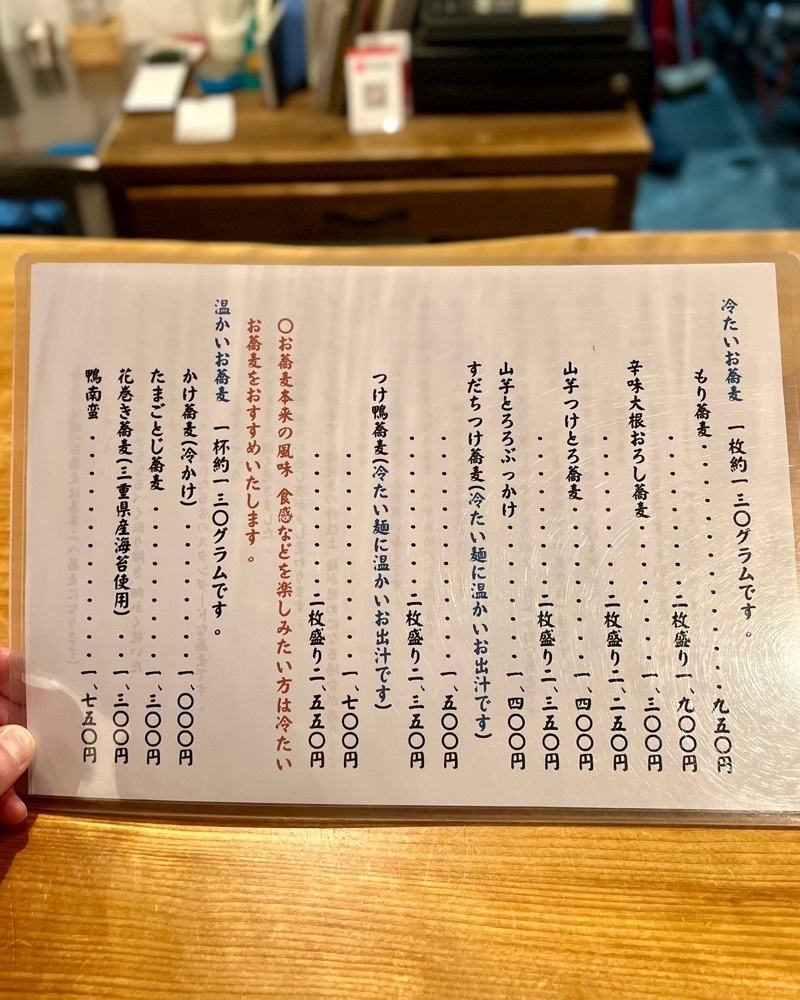 冷たいお蕎麦 一枚約一三〇グラムです。
もり蕎麦・・・・・・・・・・・・・九五〇円
・・・・・・・・二枚盛り一、九〇〇円
辛味大根おろし蕎麦・・・・・・・一、三〇〇円
・・・・・・・・二枚盛り二、二五〇円
山芋つけとろ蕎麦・・・・・・・・一、四〇〇円
・・・・・・・・二枚盛り二、三五〇円
山芋とろろぶっかけ・・・・・・・一、四〇〇円
すだちつけ蕎麦(冷たい麺に温かいお出汁です)
・・・・・・・・・・・・一、五〇〇円
・・・・・・・・二枚盛り二、三五〇円
つけ鴨蕎麦(冷たい麺に温かいお出汁です)
・・・・・・・・・・・・一、七〇〇円
・・・・・・・・二枚盛り二、五五〇円
〇お蕎麦本来の風味 食感などを楽しみたい方は冷たい
お蕎麦をおすすめいたします。
温かいお蕎麦 一杯約一三〇グラムです。
かけ蕎麦(冷かけ)・・・・・・・一、〇〇〇円
たまごとじ蕎麦・・・・・・・・一、三〇〇円
花巻き蕎麦(三重県産海苔使用)・・一、三〇〇円
鴨南蛮・・・・・・・・・・・・一、七五〇円